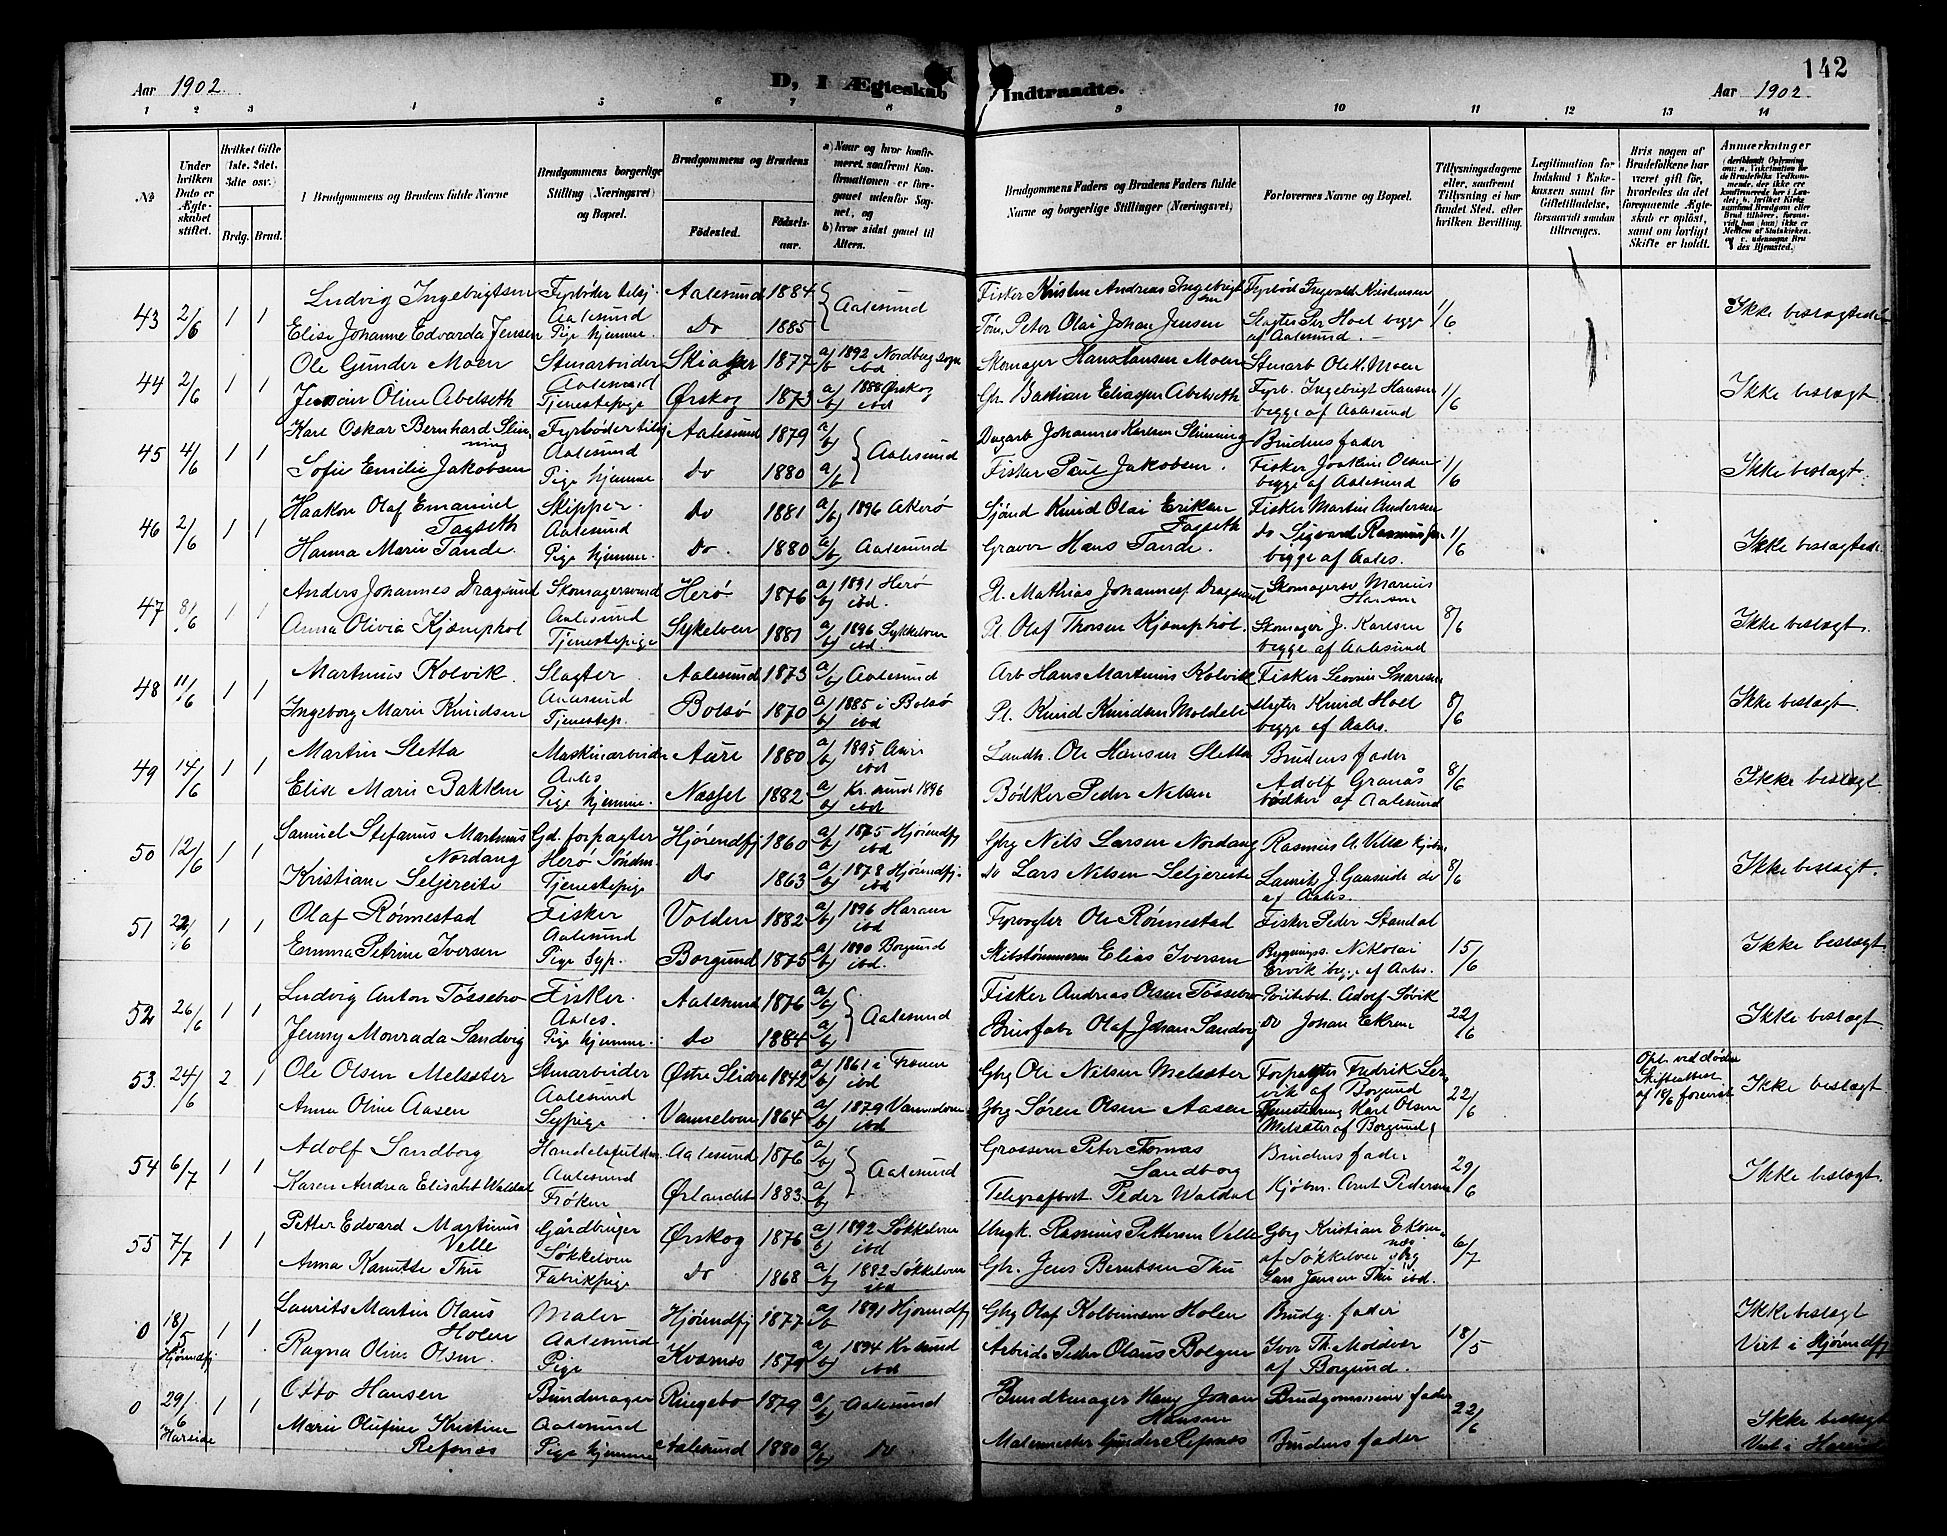 142
Aar 1902.
D, I Ægteskab Indtraadte.
Aar 1902.
1 2 3 4 5 6 7 8 9 10 11 12 13 14
№
Under hvilken Dato er Ægteskabet stiftet.
Hvilket Gifte (1ste. 2det. 3die osv.)
Brdg. Brud.
Brudgommens og Brudens fulde Navne
Brudgommens borgerlige Stilling (Næringsvei) og Bopæl.
Brudgommens og Brudens
Fødested.
Fødselsaar.
a) Naar og hvor konfirmeret, saafremt Konfirmationen er foregaaet udenfor Sognet, og
b) hvor sidst gaaet til Alters.
Brudgommens Faders og Brudens Faders fulde Navne og borgerlige Stillinger (Næringsvei)
Forlovernes Navne og Bopæl.
Tillysningsdagene eller, saafremt Tillysning ei har fundet Sted, efter hvilken Bevilling.
Legitimation for Indskud i Enkekassen samt for Giftetilladelse, forsaavidt saadan tiltrænges.
Hvis nogen af Brudefolkene har været gift før, hvorledes da det foregaaende Ægteskab er opløst, samt om lovligt Skifte er holdt.
Anmærkninger
43 2/6 1 1
Ludvig Ingebrigtsen Fyrbøder tilsj. Aalesund 1884 Aalesund Fisker Kristen Andreas Ingebrigtsen Fyrbød Ingvald Kristensen 1/6 Ikke beslægtede
Aalesund
Elise Johanne Edvarda Jensen Pige hjemme. Do 1885 Tøm. Peter Olai Johan Jensen Slagter Per Hoel begge
af Aalesund.
44 2/6 1 1
Ole Gunder Moen Stenarbeider Skiager 1877 a/b 1892 Nordberg Sogn ibd Skomager Hans Hansen Moen Stenarb Ole H. Moen
Aalesund
Oline Abelseth Tjenestepige Ørskog 1873 a/b 1888 Ørskog ibd Gbr. Bastian Eliasen Abelseth Fyrb. Ingebrigt Hansen 1/6 Ikke beslægt.
begge af Aalesund
45 4/6 1 1
Karl Oskar Bernhard Slinning Fyrbøder tilsj Aalesund 1879 a/b Aalesund Dagarb Johannes Karlsen Slinning Brudens fader
Aalesund
Sofie Emilie Jakobsen Pige hjemme Do 1880 a/b Fisker Paul Jakobsen. Fisker Joakim Olsen 1/6 Ikke beslægt.
begge af Aalesund
46 2/6 1 1
Haakon Olaf Emanuel Fagseth Skipper. Do 1881 a/b 1896 Akerø Sjømd Knud Olai Eriksen Fagseth Fisker Martin Andersen
Aalesund
Hanna Marie Tande. Pige hjemme. Do. 1880 a/b Aalesund Graver Hans Tande. do Sigvard 1/6 Ikke beslægtede
begge af Aales.
47 8/6 1 1
Anders Johannes Dragsund Skomagersvend Herø 1876 a/b 1891 Herø ibd. Pl. Mathias Johannesf Dragsund Skomagersv Marius Hansen
Aalesund
Anna Olivia Kjæmphol Tjenestepige Sykelven 1881 a/b 1896 Sykkelven ibd. Pl. Olaf Thorsen Kjæmphol. Skomager J. Karlsen 8/6 Ikke beslægt.
begge af Aalesund
48 11/6 1 1
Martinus Kolvik. Slagter. Aalesund 1873 a/b Aalesund Arb Hans Martinus Kolvik Fisker
Aalesund
Ingeborg Marie Knudsen Tjenestep. Bolsø 1870 a/b 1885 i Bolsø ibd Pl. Knud Knudsen Moldeli slagter Knud Hoel 8/6 Ikke beslægt.
begge af Aales.
49 14/6 1 1
Martin Sletta Maskinarbeider Aure 1880 a/b 1895 Aure ibd Landh. Ole Hansen Sletta Brudens fader
Aales
Elise Marie Bakken Pige hjemme. Nesset 1882 a/b Kr. sund 1896 ibd Bødker Peder Nelsen Adolf Granås 8/6 Ikke beslægt
bødker af Aalesund
50 12/6 1 1
Samuel Stefanus Martinus Nordang Gd. forpagter Hjørendfj 1860 a/b 1875 Hjørendfj ibd Gbrg Nils Larsen Nordang Rasmus A. Velle kjøbm
Herø Søndm.
Kristiane Seljereite Tjenestepige Do 1863 a/b 1878 Hjørendfj. ibd do Lars Nelsen Seljereite Laurits J. do 8/6 Ikke beslægt.
af Aales.
51 22/6 1 1
Olaf Rønnestad Fisker Volden 1882 a/b 1896 Haram ibd Fyrvogter Ole Rønnestad Fisker Peder Standal
Aalesund
Emma Petrine Iversen Pige Syp. Borgund 1875 a/b 1890 Borgund ibd. Skibstømmerm Elias Iversen Bygnings. Nikolai 15/6 Ikke beslægt
Ervik begge af Aales.
52 26/6 1 1
Ludvig Anton Tøssebro Fisker. Aalesund 1876 a/b Aalesund Fisker Andreas Olsen Tøssebro Adolf Søvik
Aales.
Jenny Monrada Sandvig Pige hjemme. Do 1884 a/b Olaf Johan Sandvig do Johan Ekrem 22/6 Ikke beslægt
53. 24/6 2 1
Ole Olsen Melsæter Stenarbeider Østre Slidre 1842 a/b 1861 i Fronen ibd Gbrg Ole Nilsen Melsæter Forpagter Fredrik Lervik af Borgund Opl. ved døden Skifteattest af 18/6 forevist
Aalesund
Anna Oline Aasen Sypige Vannelven 1864 a/b 1879 Vannelven ibd Gbrg Søren Olsen Aasen Karl Olsen 22/6 Ikke beslægt
Melsæter af Borgund
54 6/7 1 1
Adolf Sandborg Aalesund 1876 a/b Aalesund Grosserer Peter Tomas Sandborg Brudens fader
Aalesund
Karen Andrea Elisabet Waldal Frøken Ørlandet 1883 a/b Telegrafbest Peder Waldal Kjøbm. Arnt Pedersen 29/6 Ikke beslægt.
55 7/7 1 1
Petter Edvard Martinus Velle Gårdbruger Ørskog 1876 a/b 1892 Søkkelven ibd Ungk. Rasmus Pettersen Velle Gbrg Kristian Ekornnæs
Søkkelven af Søkkelven gbrg
Anna Kanutte Thu Fabrikpige Do 1868 a/b 1882 Søkkelven ibd Gbr. Jens Berntsen Thu Lars Jensen Thu ibd. 6/7
0 18/5 Hjørendfj 1 1
Laurits Martin Olaus Holen Maler Hjørendfj 1877 a/b 1891 Hjørendfj Gbrg Olaf Kolbeinsen Holen Brudg. fader Ikke beslægt
Aalesund
Ragna Oline Olsen. Pige Kvernes 1879 a/b 1894 Kr. sund ibd Arbeider Peder Olaus Bolgen Iver Th. Moldvær 18/5 Viet i Hjørendfj
af Borgund.
0 29/6 Hareide 1 1
Otto Hansen Bundtmager Ringebo 1879 a/b Aalesund Bundtmager Hans Johan Hansen Brudgommens fader 22/6
Aalesund
Marie Olufine Kristine Refsnæs Pige hjemme Aalesund 1880 a/b Do Malermester Gunder Refsnæs Brudens fader Ikke beslægt
Viet i Hareide